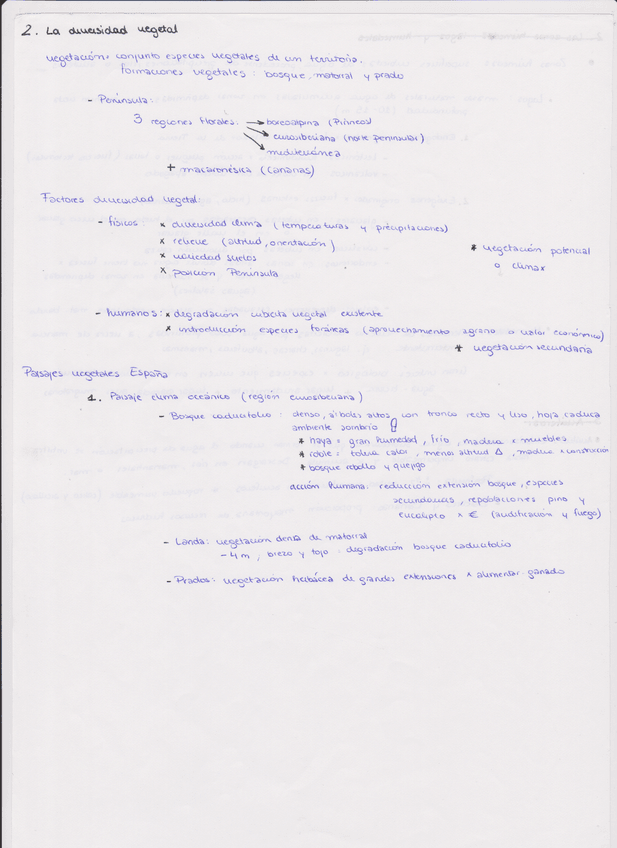 2. La diversidad vegetal
vegetación: conjunto especies vegetales de un territorio.
formaciones vegetales: bosque, matorral y prado
- Península:
3 regiones florales: → boreoalpina (Pirineos)
→ eurosiberiana (norte peninsular)
→ mediterránea
+ macaronésica (Canarias)
Factores diversidad vegetal:
- físicos: x diversidad clima (temperaturas y precipitaciones)
x relieve (altitud, orientación)
* vegetación potencial
x variedad suelos
o climax
x posición Península
- humanos: x degradación cubierta vegetal existente
x introducción especies foráneas (aprovechamiento agrario o valor económico)
* vegetación secundaria
Paisajes vegetales España
1. Paisaje clima oceánico (región eurosiberiana)
- Bosque caducifolio: denso, árboles altos con tronco recto y liso, hoja caduca
ambiente sombrío
* haya = gran humedad, frío, madera x muebles
* roble = tolera calor, menos altitud Δ, madera x construcción
* bosque rebollo y quejigo
acción humana: reducción extensión bosque, especies
secundarias, repoblaciones pino y
eucalipto x € (acidificación y fuego)
- Landa: vegetación densa de matorral
- 4m, brezo y tojo: degradación bosque caducifolio
- Prados: vegetación herbácea de grandes extensiones x alimentar ganado